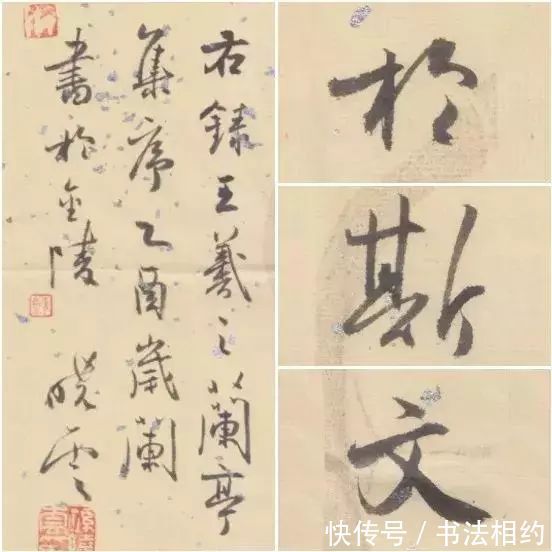 右錄王羲之蘭亭
集序乙酉歲蘭
書於金陵
曉雲
於
斯
文
快传号 / 书法相约